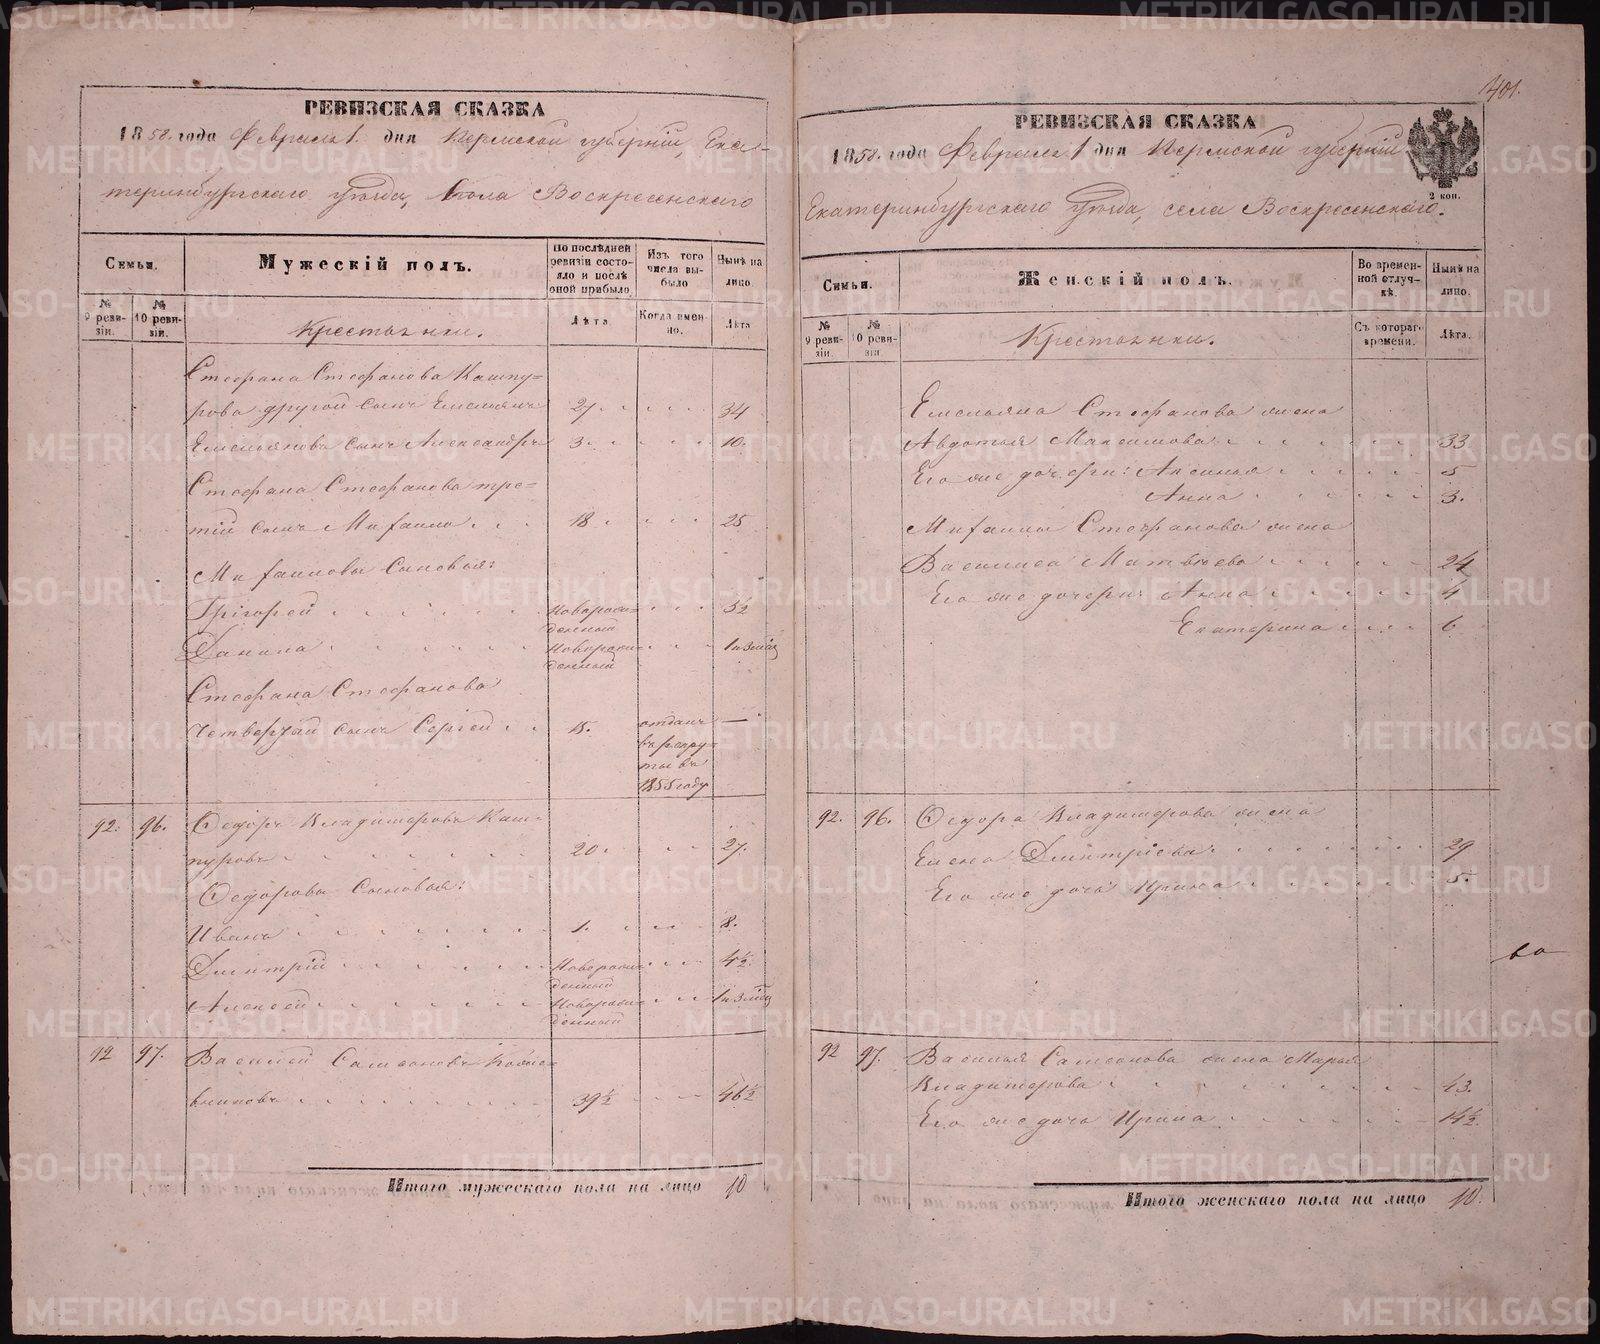 401.
РЕВИЗСКАЯ СКАЗКА
1858. года Февраля 1. дня Пермской губерніи, Ека-
теринбургскаго уѣзда, села Воскресенскаго
Семьи.
Мужескій полъ.
По послѣдней ревизіи состояло и послѣ оной прибыло.
Изъ того числа выбыло
Нынѣ на лицо.
№ 9 ревизіи.
№ 10 ревизіи.
Крестьяне.
Лѣта
Когда именно.
Лѣта
Стефана Стефанова Кашпу-
рова другой сынъ Емельянъ 27 34
Емельянова сынъ Александръ 3. 10.
Стефана Стефанова тре-
тій сынъ Михаило 18 25
Михаиловы Сыновья:
Григорей новорожденный 3½
Данила новорожденный 1 и 3 мѣс
Стефана Стефанова
Четвертый сынъ Сергѣй 15. отданъ —
въ рекру-
ты въ
1855 году
92. 96. Федоръ Владимеровъ Каш-
пуровъ 20 27.
Федоровы Сыновья:
Иванъ 1. 8.
Дмитрій новорожденный 4½
Алексѣй новорожденный 1 и 3 мѣс
92 97. Василей Самсоновъ
39½ 46½
Итого мужескаго пола на лицо 10
РЕВИЗСКАЯ СКАЗКА
2 коп.
1858. года Февраля 1 дня Пермской губерніи
Екатеринбургскаго уѣзда, села Воскресенскаго.
Семьи.
Женскій полъ.
Во временной отлучкѣ.
Нынѣ на лицо.
№ 9 ревизіи.
№ 10 ревизіи
Крестьянки.
Съ котораго времени.
Лѣта.
Емельяна Стефанова жена
Авдотья Максимова 33
Его же дочери: Аксинья 5
Анна 3.
Михаилы Стефанова жена
Василиса Матвѣева 24
Его же дочери Анна 4
Екатерина 6
92. 96. Федора Владимерова жена
Елена Дмитріева 29
Его же дочь Ирина 5.
92 97. Василья Самсонова жена Марья
Владимерова 43.
Его же дочь Ирина 14½
Итого женскаго пола на лицо 10.
METRIKI.GASO-URAL.RU